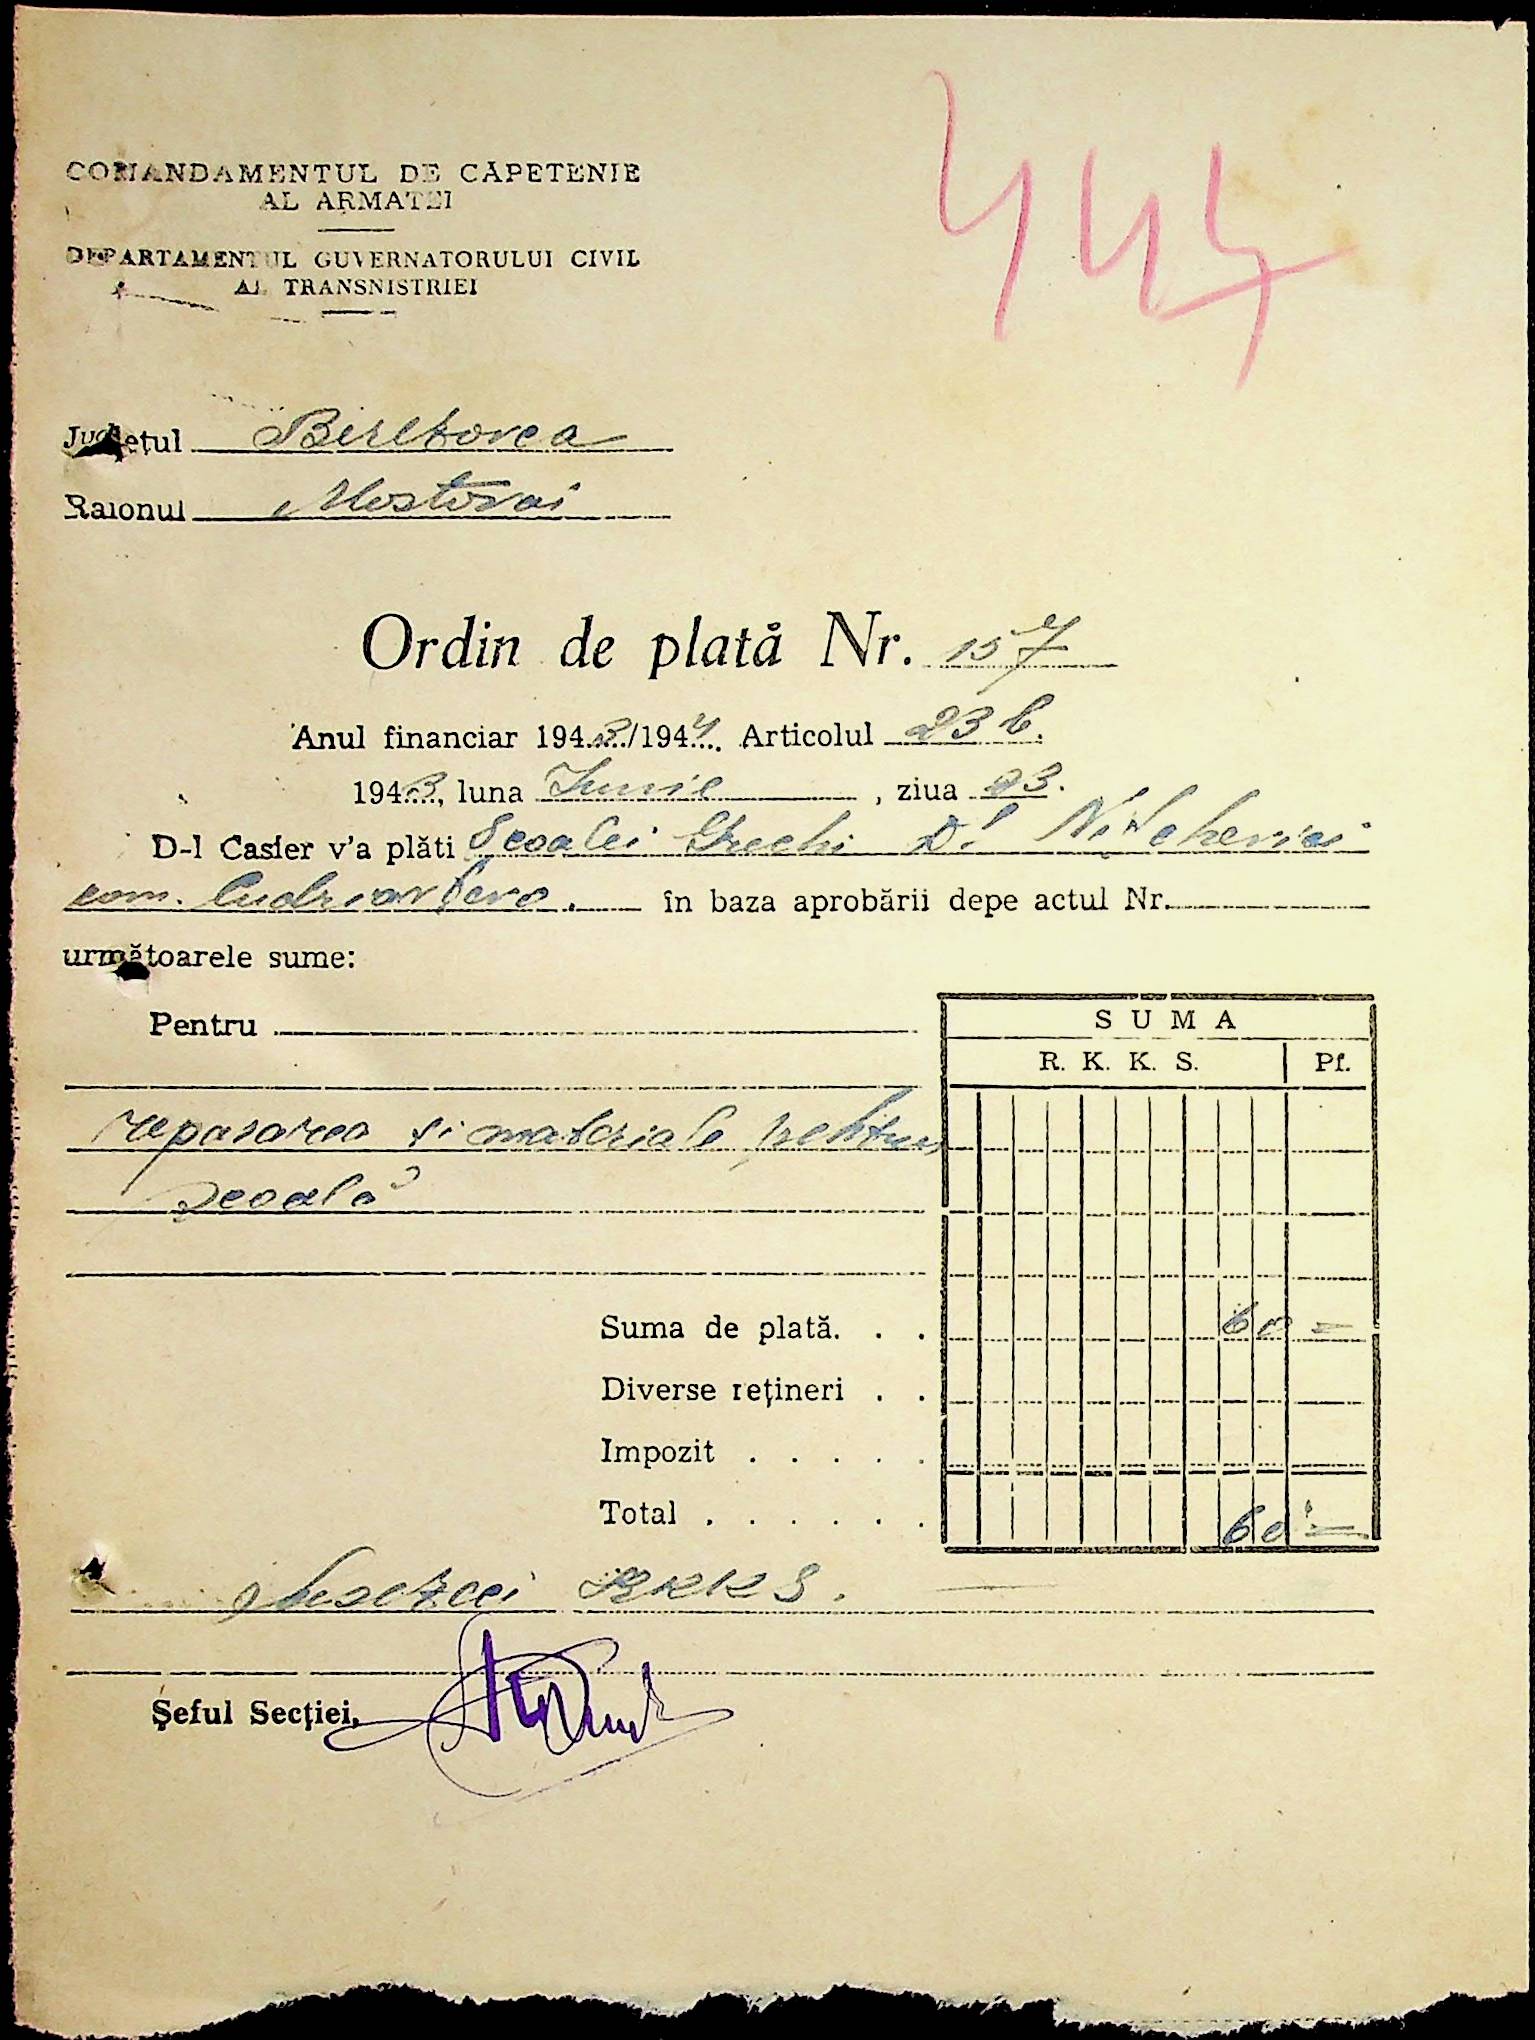 444
COMANDAMENTUL DE CAPETENIE
AL ARMATEI
DEPARTAMENTUL GUVERNATORULUI CIVIL
AL TRANSNISTRIEI
Județul Berezovca
Raionul Mostovoi
Ordin de plată Nr. 157
Anul financiar 1943/1944. Articolul 23 b.
1943, luna Iunie, ziua 23.
D-l Casier v'a plăti Scoalei
com. în baza aprobării depe actul Nr.
următoarele sume:
Pentru
SUMA
R. K. K. S. Pf.
repararea si materiale pentru
scoală
Suma de plată. . . 60 =
Diverse rețineri . .
Impozit . . . . .
Total . . . . . . 60 =
Sasezeci RKKS.
Șeful Secției,